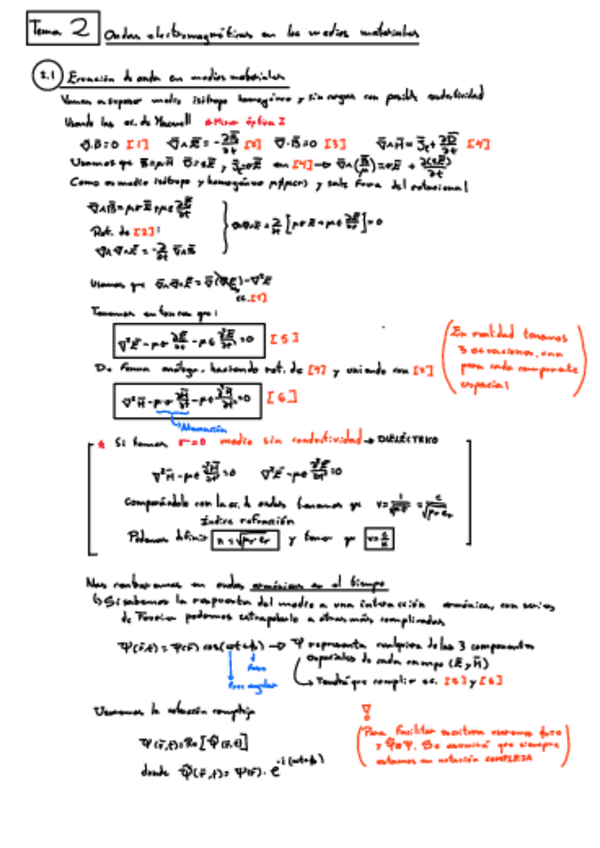 Tema 2 Ondas electromagnéticas en los medios materiales
2.1 Ecuación de onda en medios materiales
Vamos a suponer medio isótropo homogéneo y sin cargas con posible conductividad
Usando las ec. de Maxwell * Mirar óptica I
∇·D̄=0 [1] ∇∧Ē=-∂B̄/∂t [2] ∇·B̄=0 [3] ∇∧H̄=J̄c+∂D̄/∂t [4]
Usamos que B̄=μH̄ D̄=εĒ, J̄c=σĒ en [4] → ∇∧(B̄/μ)=σĒ+∂(εĒ)/∂t
Como es medio isótropo y homogéneo y sale fuera del rotacional
∇∧B̄=μσĒ+με ∂Ē/∂t
Rot. de [2]:
∇∧∇∧Ē=-∂/∂t ∇∧B̄
∇∧∇∧Ē+∂/∂t[μσĒ+με ∂Ē/∂t]=0
Usamos que ∇∧∇∧Ē=∇(∇Ē)-∇²Ē
ec. [1]
Tenemos entonces que:
∇²Ē-μσ ∂Ē/∂t-με ∂²Ē/∂t²=0 [5]
(En realidad tenemos
3 ecuaciones, una
para cada componente
espacial)
De forma análoga, haciendo rot. de [4] y uniendo con [2]
∇²H̄-μσ ∂H̄/∂t-με ∂²H̄/∂t²=0 [6]
Atenuación
* Si tenemos σ=0 medio sin conductividad → DIELÉCTRICO
∇²H̄-με ∂²H̄/∂t²=0 ∇²Ē-με ∂²Ē/∂t²=0
Comparándolo con la ec. de ondas tenemos que v=1/√με=c/√μrεr
índice refracción
Podemos definir n=√μrεr y tener que v=c/n
Nos centraremos en ondas armónicas en el tiempo
↳ Si sabemos la respuesta del medio a una interacción armónica, con series
de Fourier podemos extrapolarlo a otras más complicadas
Ψ(r̄,t)=Ψ(r̄) cos(ωt+φ₀) → Ψ representa cualquiera de las 3 componentes
espaciales de cada campo (Ē,H̄)
fase
frec angular
↳ Tendrá que cumplir ec. [5] y [6]
Usaremos la notación compleja
Ψ(r̄,t)=Re[Ψ̂(r̄,t)]
donde Ψ̂(r̄,t)=Ψ(r̄)·e^-i(ωt+φ₀)
(Para facilitar escritura usaremos
y Ψ̂≡Ψ. Se asumirá que siempre
estamos en notación COMPLEJA)